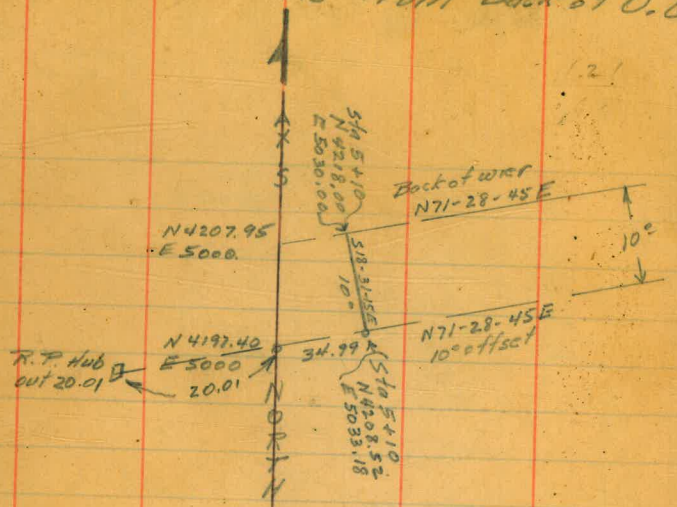 AXIS
Sta 5+10
N 4218.00
E 5030.00
Back of wier
N71-28-45E
N4207.95
E 5000.
10°
S18-31-15E
10°
N 4197.40
E 5000
34.99
N71-28-45E
10° offset
R.P. Hub
out 20.01
20.01
Sta 5+10
N4208.52
E 5033.18
NORTH